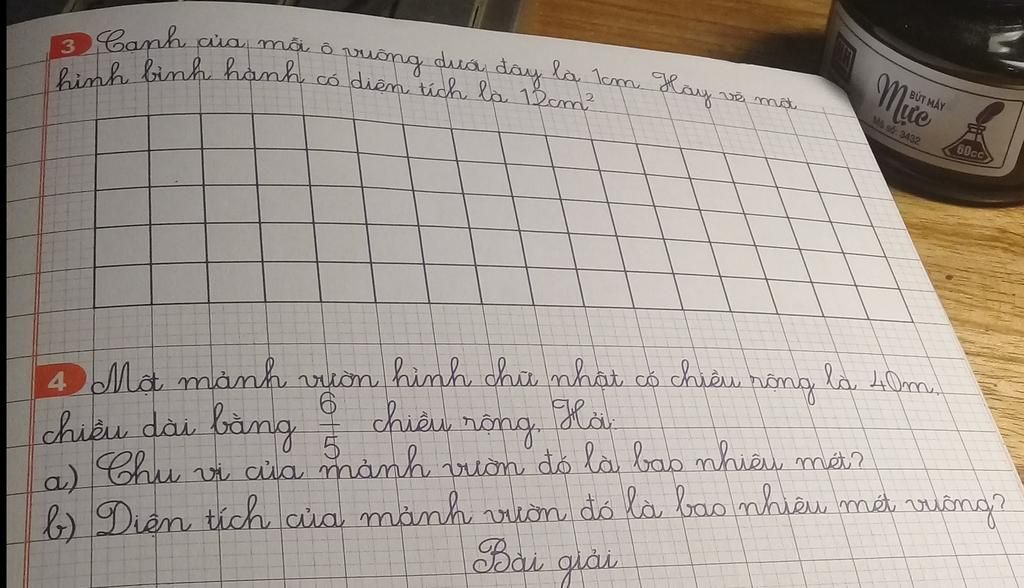 3 Cạnh của mỗi ô vuông dưới đây là 1cm. Hãy vẽ một
hình bình hành có diện tích là 12cm²
BÚT MÁY
Mực
Mã số: 3432
60cc
4 Một mảnh vườn hình chữ nhật có chiều rộng là 40m,
chiều dài bằng 6/5 chiều rộng. Hỏi:
a) Chu vi của mảnh vườn đó là bao nhiêu mét?
b) Diện tích của mảnh vườn đó là bao nhiêu mét vuông?
Bài giải